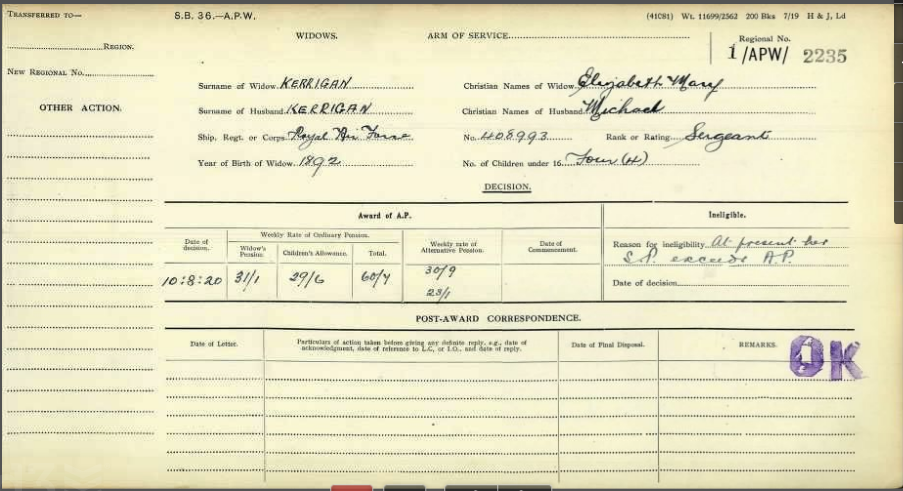 TRANSFERRED TO—
S.B. 36.—A.P.W.
(41081) Wt. 11699/2562 200 Bks 7/19 H & J, Ld
REGION.
WIDOWS.
ARM OF SERVICE
Regional No.
1/APW/ 2235
NEW REGIONAL No.
OTHER ACTION.
Surname of Widow KERRIGAN
Christian Names of Widow Elizabeth Mary
Surname of Husband KERRIGAN
Christian Names of Husband Michael
Ship, Regt. or Corps Royal Air Force
No. 408993
Rank or Rating Sergeant
Year of Birth of Widow 1892
No. of Children under 16 Four (4)
DECISION.
Award of A.P.
Ineligible.
Date of decision.
Weekly Rate of Ordinary Pension.
Widow's Pension.
Children's Allowance.
Total.
Weekly rate of Alternative Pension.
Date of Commencement.
Reason for ineligibility At present her
S.P. exceeds A.P.
10:8:20 31/1 29/6 60/7 30/9
23/1
Date of decision
POST-AWARD CORRESPONDENCE.
Date of Letter.
Particulars of action taken before giving any definite reply, e.g., date of acknowledgment, date of reference to L.C. or I.O., and date of reply.
Date of Final Disposal.
REMARKS.
OK